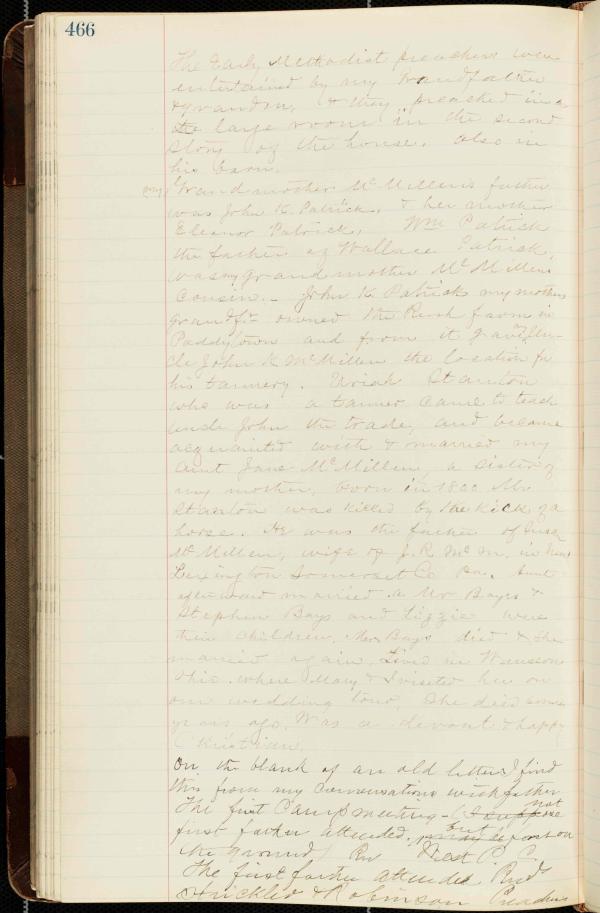 466
The Early Methodist preachers were
entertained by my Grandfather
& Grandm, & they preached in a
the large room in the second
Story of the house, also in
his barn.
my Grandmother McMillens father
was John K. Patrick, & her mother
Eleanor Patrick, Wm Patrick
the father of Wallace Patrick,
was my grandmother McMillens
Cousin. - John K Patricks my mothers
grandfr owned the Rush farm in
Paddytown and from it gave my Un-
cle John K McMillen the location for
his tannery. Uriah Stanton
who was a tanner came to teach
uncle John the trade, and became
acquainted with & married my
aunt Jane McMillen, a sister of
my mother, born in 1800 Mr
Stanton was killed by the kick of a
horse. He was the father of
McMillen, wife of J. R. McM. in New
Lexington Somerset Co Pa. Aunt
afterward married a Mr Bays &
Stephen Bays and Lizzie were
their children, Mr Bays died & she
married again, Lived in Wauseon
Ohio where Mary & I visited her on
our wedding tour, She died some
years ago. Was a devout & happy
Christian.
On the blank of an old letter I find
this from my conversations with father
The first Camp meeting - (I suppose not
first father attended, but first on
the ground)
The first father attended
Strickler & Robinson Preachers